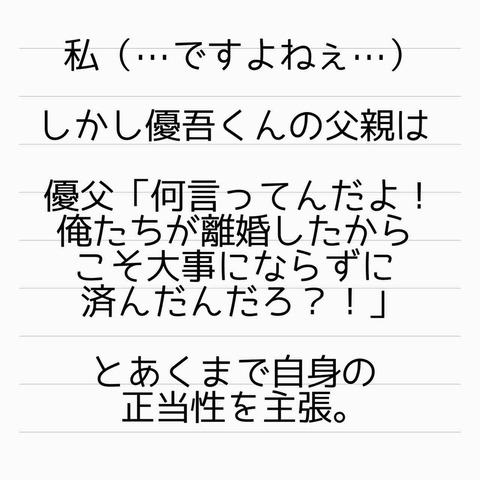 私（…ですよねぇ…）
しかし優吾くんの父親は
優父「何言ってんだよ！
俺たちが離婚したから
こそ大事にならずに
済んだんだろ？！」
とあくまで自身の
正当性を主張。